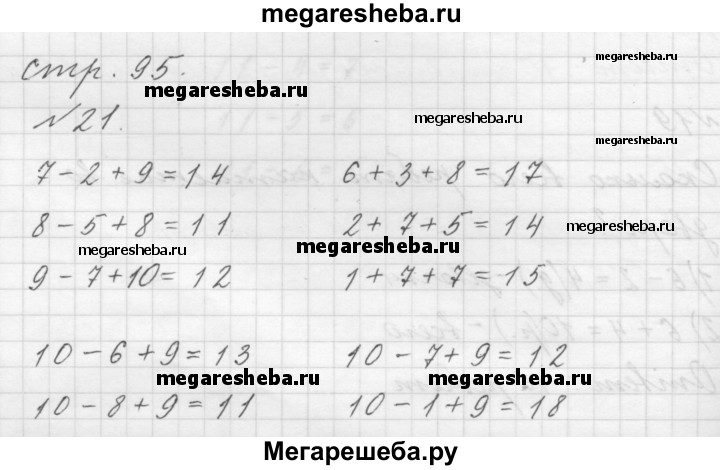 megaresheba.ru
megaresheba.ru
стр. 95.
megaresheba.ru
№21.
megaresheba.ru
7-2+9=14 6+3+8=17
8-5+8=11 2+7+5=14
megaresheba.ru
megaresheba.ru
megaresheba.ru
9-7+10=12 1+7+7=15
10-6+9=13 10-7+9=12
megaresheba.ru megaresheba.ru
10-8+9=11 10-1+9=18
Мегарешеба.ру